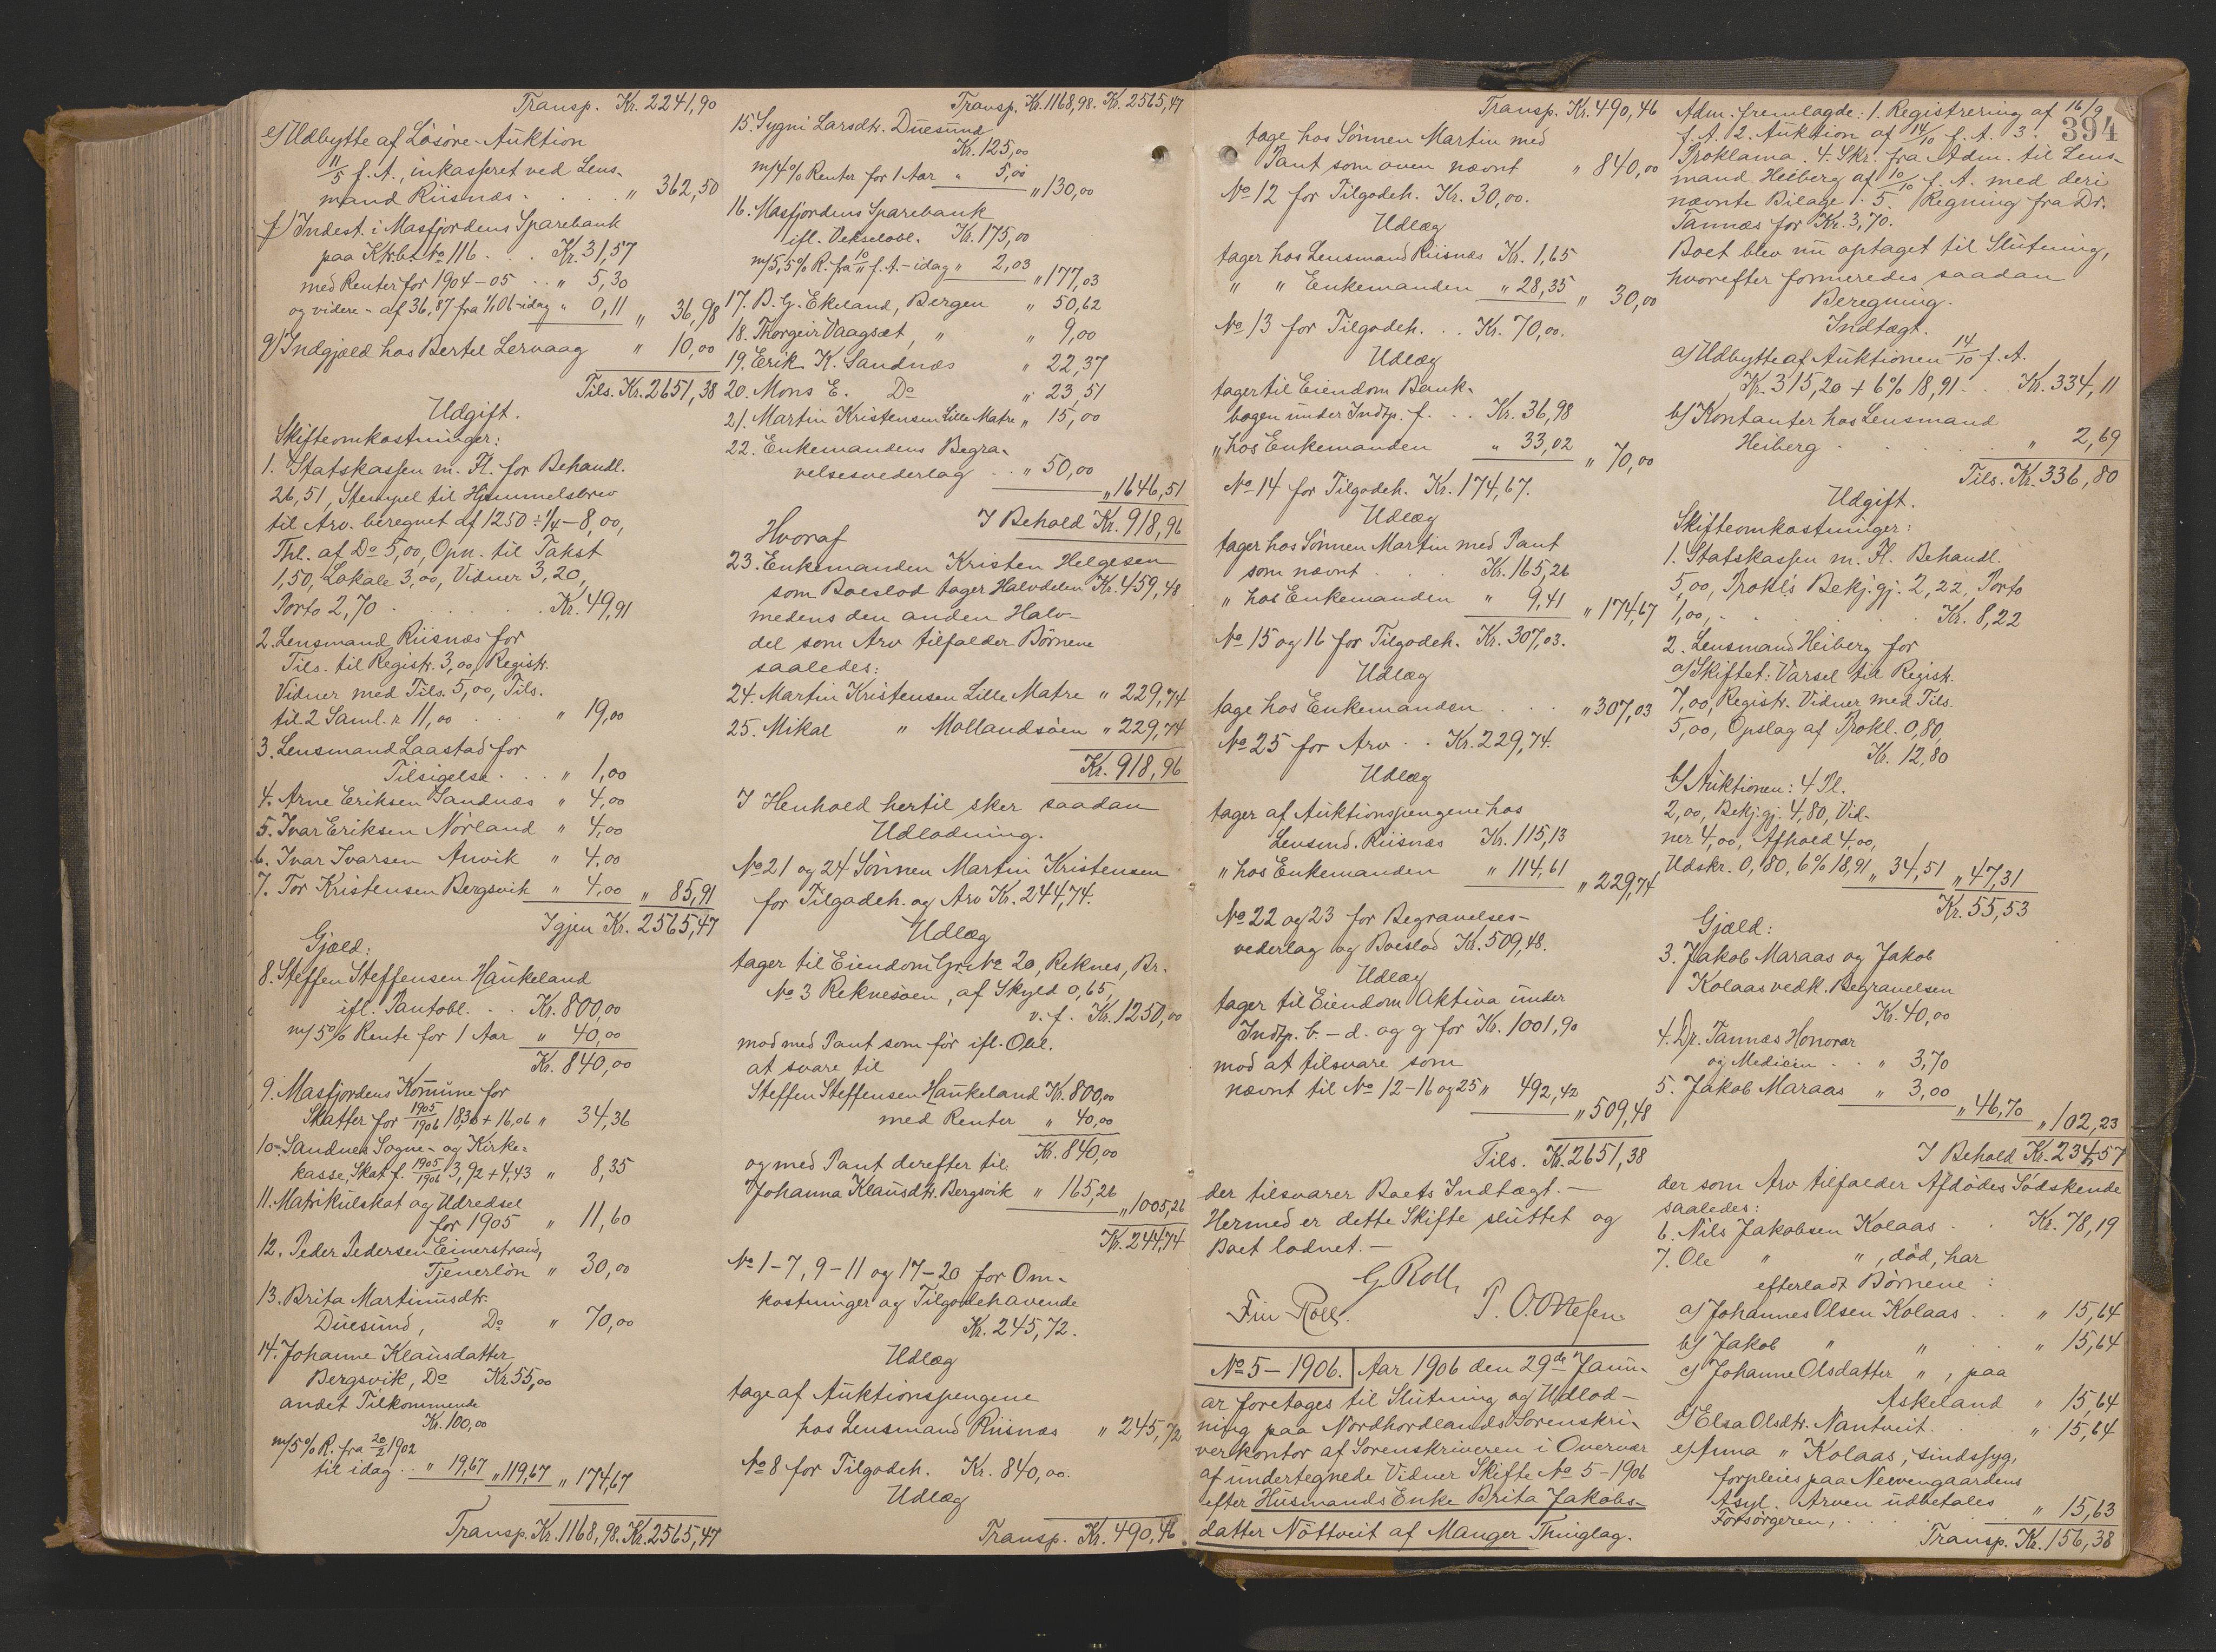 Transp. Kr. 2241,90
e) Udbytte af Løsøre-Auktion
11/5 f. A., inkasseret ved Lens-
mand Riisnæs. . . . " 362,50
f) Indest. i Masfjordens Sparebank
paa Ktrb. No 116 . . . Kr. 31,57
med Renter for 1904-05 . . " 5,30
og videre - af 36,87 fra 1/1 06-idag " 0,11 " 36,98
g) Indgjæld hos Bertel Lervaag " 10,00
Tils. Kr. 2651,38
Udgift.
Skifteomkostninger:
1. Statskassen m. Fl. for Behandl.
26,51, Stempel til Hjemmelsbrev
til Arv. beregnet af 1250 ÷ 1/4 - 8,00,
Thl. af Do 5,00, Opn. til Takst
1,50, Lokale 3,00, Vidner 3,20,
Porto 2,70 . . . . . Kr. 49,91
2. Lensmand Riisnæs for
Tils. til Registr. 3,00, Registr.
Vidner med Tils. 5,00, Tils.
til 2 Saml. " 11,00 . . . " 19,00
3. Lensmand Laastad for
Tilsigelse . . . " 1,00
4. Arne Eriksen Sandnæs " 4,00
5. Ivar Eriksen Nørland " 4,00
6. Ivar Ivarsen Anvik " 4,00
7. Tor Kristensen Bergsvik " 4,00 " 85,91
Igjen Kr. 2565,47
Gjæld:
8. Steffen Steffensen Haukeland
ifl. Pantobl. . . Kr. 800,00
m/ 5% Rente for 1 Aar " 40,00
Kr. 840,00
9. Masfjordens Kommune for
Skatter for 1905/1906 18,30 + 16,06 " 34,36
10. Sandnes Sogne- og Kirke-
kasse, Skat f. 1905/1906 3,92 + 4,43 " 8,35
11. Matrikulskat og Udredsel
for 1905 " 11,60
12. Peder Pedersen Einerstrand,
Tjenerløn " 30,00
13. Brita Martinusdtr.
Duesund, Do " 70,00
14. Johanne Klausdatter
Bergsvik, Do Kr. 55,00
andet Tilkommende
Kr. 100,00
m/ 5% R. fra 20/2 1902
til idag . . " 19,67 " 119,67 " 174,67
Transp. Kr. 1168,98. Kr. 2565,47
Transp. Kr. 1168,98. Kr. 2565,47
15. Sygni Larsdtr. Duesund
Kr. 125,00
m/ 4% Renter for 1 Aar " 5,00 " 130,00
16. Masfjordens Sparebank
ifl. Vekselobl. Kr. 175,00
m/ 5,5% R. fra 10/11 f. A. - idag " 2,03 " 177,03
17. B. G. Ekeland, Bergen " 50,62
18. Thorgeir Vaagsæt, " " 9,00
19. Erik K. Sandnæs " 22,37
20. Mons E. Do " 23,51
21. Martin Kristensen Lille Matre " 15,00
22. Enkemandens Begra-
velsesvederlag . . " 50,00
" 1646,51
I Behold Kr. 918,96
Hvoraf
23. Enkemanden Kristen Helgesen
som Boeslod tager Halvdelen Kr. 459,48
medens den anden Halv-
del som Arv tilfalder Børnene
saaledes:
24. Martin Kristensen Lille Matre " 229,74
25. Mikal " Mollandsøen " 229,74
Kr. 918,96
I Henhold hertil sker saadan
Udlodning.
No 21 og 24 Sønnen Martin Kristensen
for Tilgodeh. og Arv Kr. 244,74.
Udlæg
tager til Eiendom Gr. No 20, Reknes, Br.
No 3 Reknesøen, af Skyld 0,65,
v. f. Kr. 1250,00
mod med Pant som før ifl. Obl.
at svare til
Steffen Steffensen Haukeland Kr. 800,00
med Renter " 40,00
Kr. 840,00
og med Pant derefter til
Johanna Klausdtr. Bergsvik " 165,26
" 1005,26
Kr. 244,74
No 1-7, 9-11 og 17-20 for Om-
kostninger og Tilgodehavende
Kr. 245,72.
Udlæg
tage af Auktionspengene
hos Lensmand Riisnæs " 245,72
No 8 for Tilgodeh. Kr. 840,00.
Udlæg
Transp. Kr. 490,46
Transp. Kr. 490,46
tage hos Sønnen Martin med
Pant som oven nævnt " 840,00
No 12 for Tilgodeh. Kr. 30,00.
Udlæg
tager hos Lensmand Riisnæs Kr. 1,65
" " Enkemanden " 28,35 " 30,00
No 13 for Tilgodeh. . . Kr. 70,00.
Udlæg
tager til Eiendom Bank-
bogen under Indtp. f. . . Kr. 36,98
" hos Enkemanden " 33,02 " 70,00
No 14 for Tilgodeh. Kr. 174,67.
Udlæg
tager hos Sønnen Martin med Pant
som nævnt . . Kr. 165,26
" hos Enkemanden " 9,41 " 174,67
No 15 og 16 for Tilgodeh. Kr. 307,03.
Udlæg
tage hos Enkemanden . . . " 307,03
No 25 for Arv . . Kr. 229,74.
Udlæg
tager af Auktionspengene hos
Lensmd. Riisnæs Kr. 115,13
" hos Enkemanden " 114,61
" 229,74
No 22 og 23 for Begravelses-
vederlag og Boeslod Kr. 509,48.
Udlæg
tager til Eiendom Aktiva under
Indtp. b - d. og g for Kr. 1001,90
mod at tilsvare som
nævnt til No 12-16 og 25 " 492,42
" 509,48
Tils. Kr. 2651,38
der tilsvarer Boets Indtægt. -
Hermed er dette Skifte sluttet og
Boet lodnet. -
G Roll
Fin Roll. P. O. Ottesen
No 5 - 1906. Aar 1906 den 29de Janu-
ar foretages til Slutning og Udlod-
ning paa Nordhordlands Sorenskri-
verkontor af Sorenskriveren i Overvær
af undertegnede Vidner Skifte No 5 - 1906
efter Husmands Enke Brita Jakobs-
datter Nøttveit af Manger Thinglag.
394
Adm. fremlagde: 1. Registrering af 16/9
f. A. 2. Auktion af 14/10 f. A. 3.
Proklama. 4. Skr. fra Adm. til Lens-
mand Heiberg af 10/10 f. A. med deri
nævnte Bilage. 5. Regning fra Dr.
Tannæs for Kr. 3,70.
Boet blev nu optaget til Slutning,
hvorefter formeredes saadan
Beregning.
Indtægt.
a) Udbytte af Auktionen 14/10 f. A.
Kr. 315,20 + 6% 18,91 . . Kr. 334,11
b) Kontanter hos Lensmand
Heiberg . . . . " 2,69
Tils. Kr. 336,80
Udgift.
Skifteomkostninger:
1. Statskassen m. Fl. Behandl.
5,00, Prokl's Bekj.gj. 2,22, Porto
1,00, . . . . . Kr. 8,22
2. Lensmand Heiberg for
a) Skiftet: Varsel til Registr.
7,00, Registr. Vidner med Tils.
5,00, Opslag af Prokl. 0,80,
Kr. 12,80
b) Auktionen: 4 Pl.
2,00, Bekj.gj. 4,80, Vid-
ner 4,00, Afhold 4,00,
Udskr. 0,80, 6% 18,91 " 34,51 " 47,31
Kr. 55,53
Gjæld:
3. Jakob Maraas og Jakob
Kolaas vedk. Begravelsen
Kr. 40,00
4. Dr. Tannæs Honorar
og Medicin . . " 3,70
5. Jakob Maraas " 3,00
" 46,70 " 102,23
I Behold Kr. 234,57
der som Arv tilfalder Afdødes Sødskende
saaledes:
6. Nils Jakobsen Kolaas . . Kr. 78,19
7. Ole " ", død, har
efterladt Børnene:
a) Johannes Olsen Kolaas . . " 15,64
b) Jakob " " . . " 15,64
c) Johanne Olsdatter " , paa
Askeland " 15,64
d) Elsa Olsdtr. Nantveit . . " 15,64
e) Anna " Kolaas, sindssyg,
forpleies paa Nevengaardens
Asyl. Arven udbetales
Forsørgeren, . . . . " 15,63
Transp. Kr. 156,38